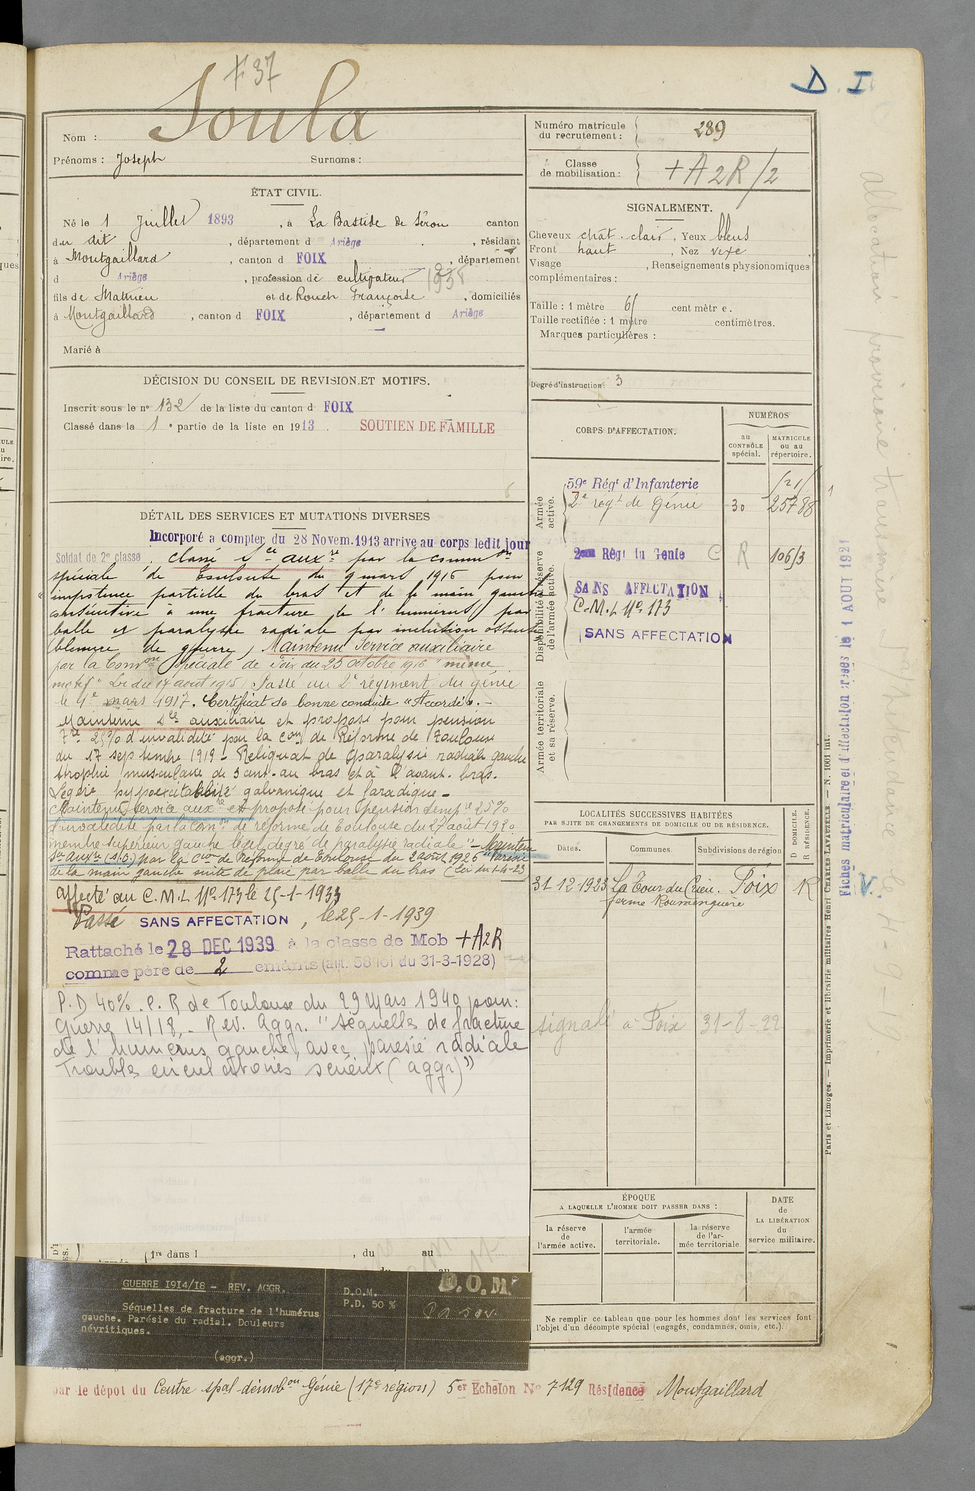 ‡37
D. I
Soula
Nom :
Prénoms : Joseph Surnoms :
ÉTAT CIVIL.
Né le 1 Juillet 1893, à La Bastide de Sérou canton
du dit, département d Ariège, résidant
à Montgaillard, canton d FOIX, département
d Ariège, profession de cultivateur
fils de Mathieu et de Rouch Françoise, domiciliés
à Montgaillard, canton d FOIX, département d Ariège
Marié à
DÉCISION DU CONSEIL DE REVISION ET MOTIFS.
Inscrit sous le n° 132 de la liste du canton d FOIX
Classé dans la 1e partie de la liste en 1913. SOUTIEN DE FAMILLE
DÉTAIL DES SERVICES ET MUTATIONS DIVERSES
Incorporé a compter du 28 Novem. 1913 arrivé au corps ledit jour
Soldat de 2e classe. Classé Sce auxre par la comm on
spéciale de Toulouse du 9 mars 1916 pour
impotence partielle du bras et de la main gauche
consécutive à une fracture de l'humérus par
balle et paralysie radiale par inclusion
blessure de guerre, Maintenu Service auxiliaire
par la Comon spéciale de Foix du 25 octobre 1916 "même
motif" Loi du 17 aout 1915. Passé au 2e régiment du génie
le 1er mars 1917. Certificat de bonne conduite "Accordé". -
Maintenu Sce auxiliaire et proposé pour pension
25% d'invalidité par la com de Réforme de Toulouse
du 17 septembre 1919 - Reliquat de paralysie radiale gauche
atrophie musculaire de 3 cent. au bras et à l'avant-bras.
Légère hypoexcitabilité galvanique et faradique -
Maintenu service auxre et proposé pour pension temp re 25%
d'invalidité par la Comon de réforme de Toulouse du 27 août 1920
membre supérieur gauche léger degré de paralysie radiale" - Maintenu
Sce auxre (a.b.) par la Con de Réforme de Toulouse du 2 août 1926 "Parésie
de la main gauche suite de plaie par balle du bras (Loi du 1-4-23
Affecté au C.M.L No 173 le 25-1-1933
Passé SANS AFFECTATION, le 25-1-1939
Rattaché le 28 DEC 1939 à la classe de Mob +A2R
comme père de 2 enfants (art. 58 loi du 31-3-1928)
P.D 40%. C. R de Toulouse du 29 Mars 1940 pour:
Guerre 14/18. - Rev. Aggr. "Séquelles de fracture
de l'humérus gauche, avec parésie radiale
Troubles circulatoires sérieux (aggr)"
1re dans l , du au
GUERRE 1914/18 - REV. AGGR.
Séquelles de fracture de l'humérus
gauche. Parésie du radial. Douleurs
névritiques.
(aggr.)
D.O.M.
P.D. 50 %
D.O.M.
par le dépot du Centre spal démobon Génie (17e région) 5er Echelon No 7129 Résidence Montgaillard
Numéro matricule du recrutement : 289
Classe de mobilisation : +A2R/2
SIGNALEMENT.
Cheveux chât. clair, Yeux bleus
Front haut, Nez vexe
Visage , Renseignements physionomiques
complémentaires :
Taille : 1 mètre 61 centimètre.
Taille rectifiée : 1 mètre centimètres.
Marques particulières :
Degré d'instruction : 3
CORPS D'AFFECTATION.
NUMÉROS
au CONTRÔLE spécial.
MATRICULE ou au répertoire.
Armée active.
59e Régt d'Infanterie
2e régt de Génie 30 25788
Disponibilité et réserve de l'armée active.
Régt du Génie C R 106/3
SANS AFFECTATION
C.M.L No 173
SANS AFFECTATION
Armée territoriale et sa réserve.
LOCALITÉS SUCCESSIVES HABITÉES
PAR SUITE DE CHANGEMENTS DE DOMICILE OU DE RÉSIDENCE.
Dates. Communes. Subdivisions de région D DOMICILE. R RÉSIDENCE.
31-12-1923 La Tour du Crieu. Foix R
ferme Roumenguère
signalé à Foix 31-8-22
ÉPOQUE
A LAQUELLE L'HOMME DOIT PASSER DANS :
la réserve de l'armée active.
l'armée territoriale.
la réserve de l'armée territoriale
DATE de LA LIBÉRATION du service militaire.
Ne remplir ce tableau que pour les hommes dont les services font
l'objet d'un décompte spécial (engagés, condamnés, omis, etc.).
Paris et Limoges. — Imprimerie et librairie militaires Henri CHARLES-LAVAUZELLE. — N. 1001 int.
Fiches matriculaire et d'affectation créées le 1 AOUT 1921
V.
allocation provisoire